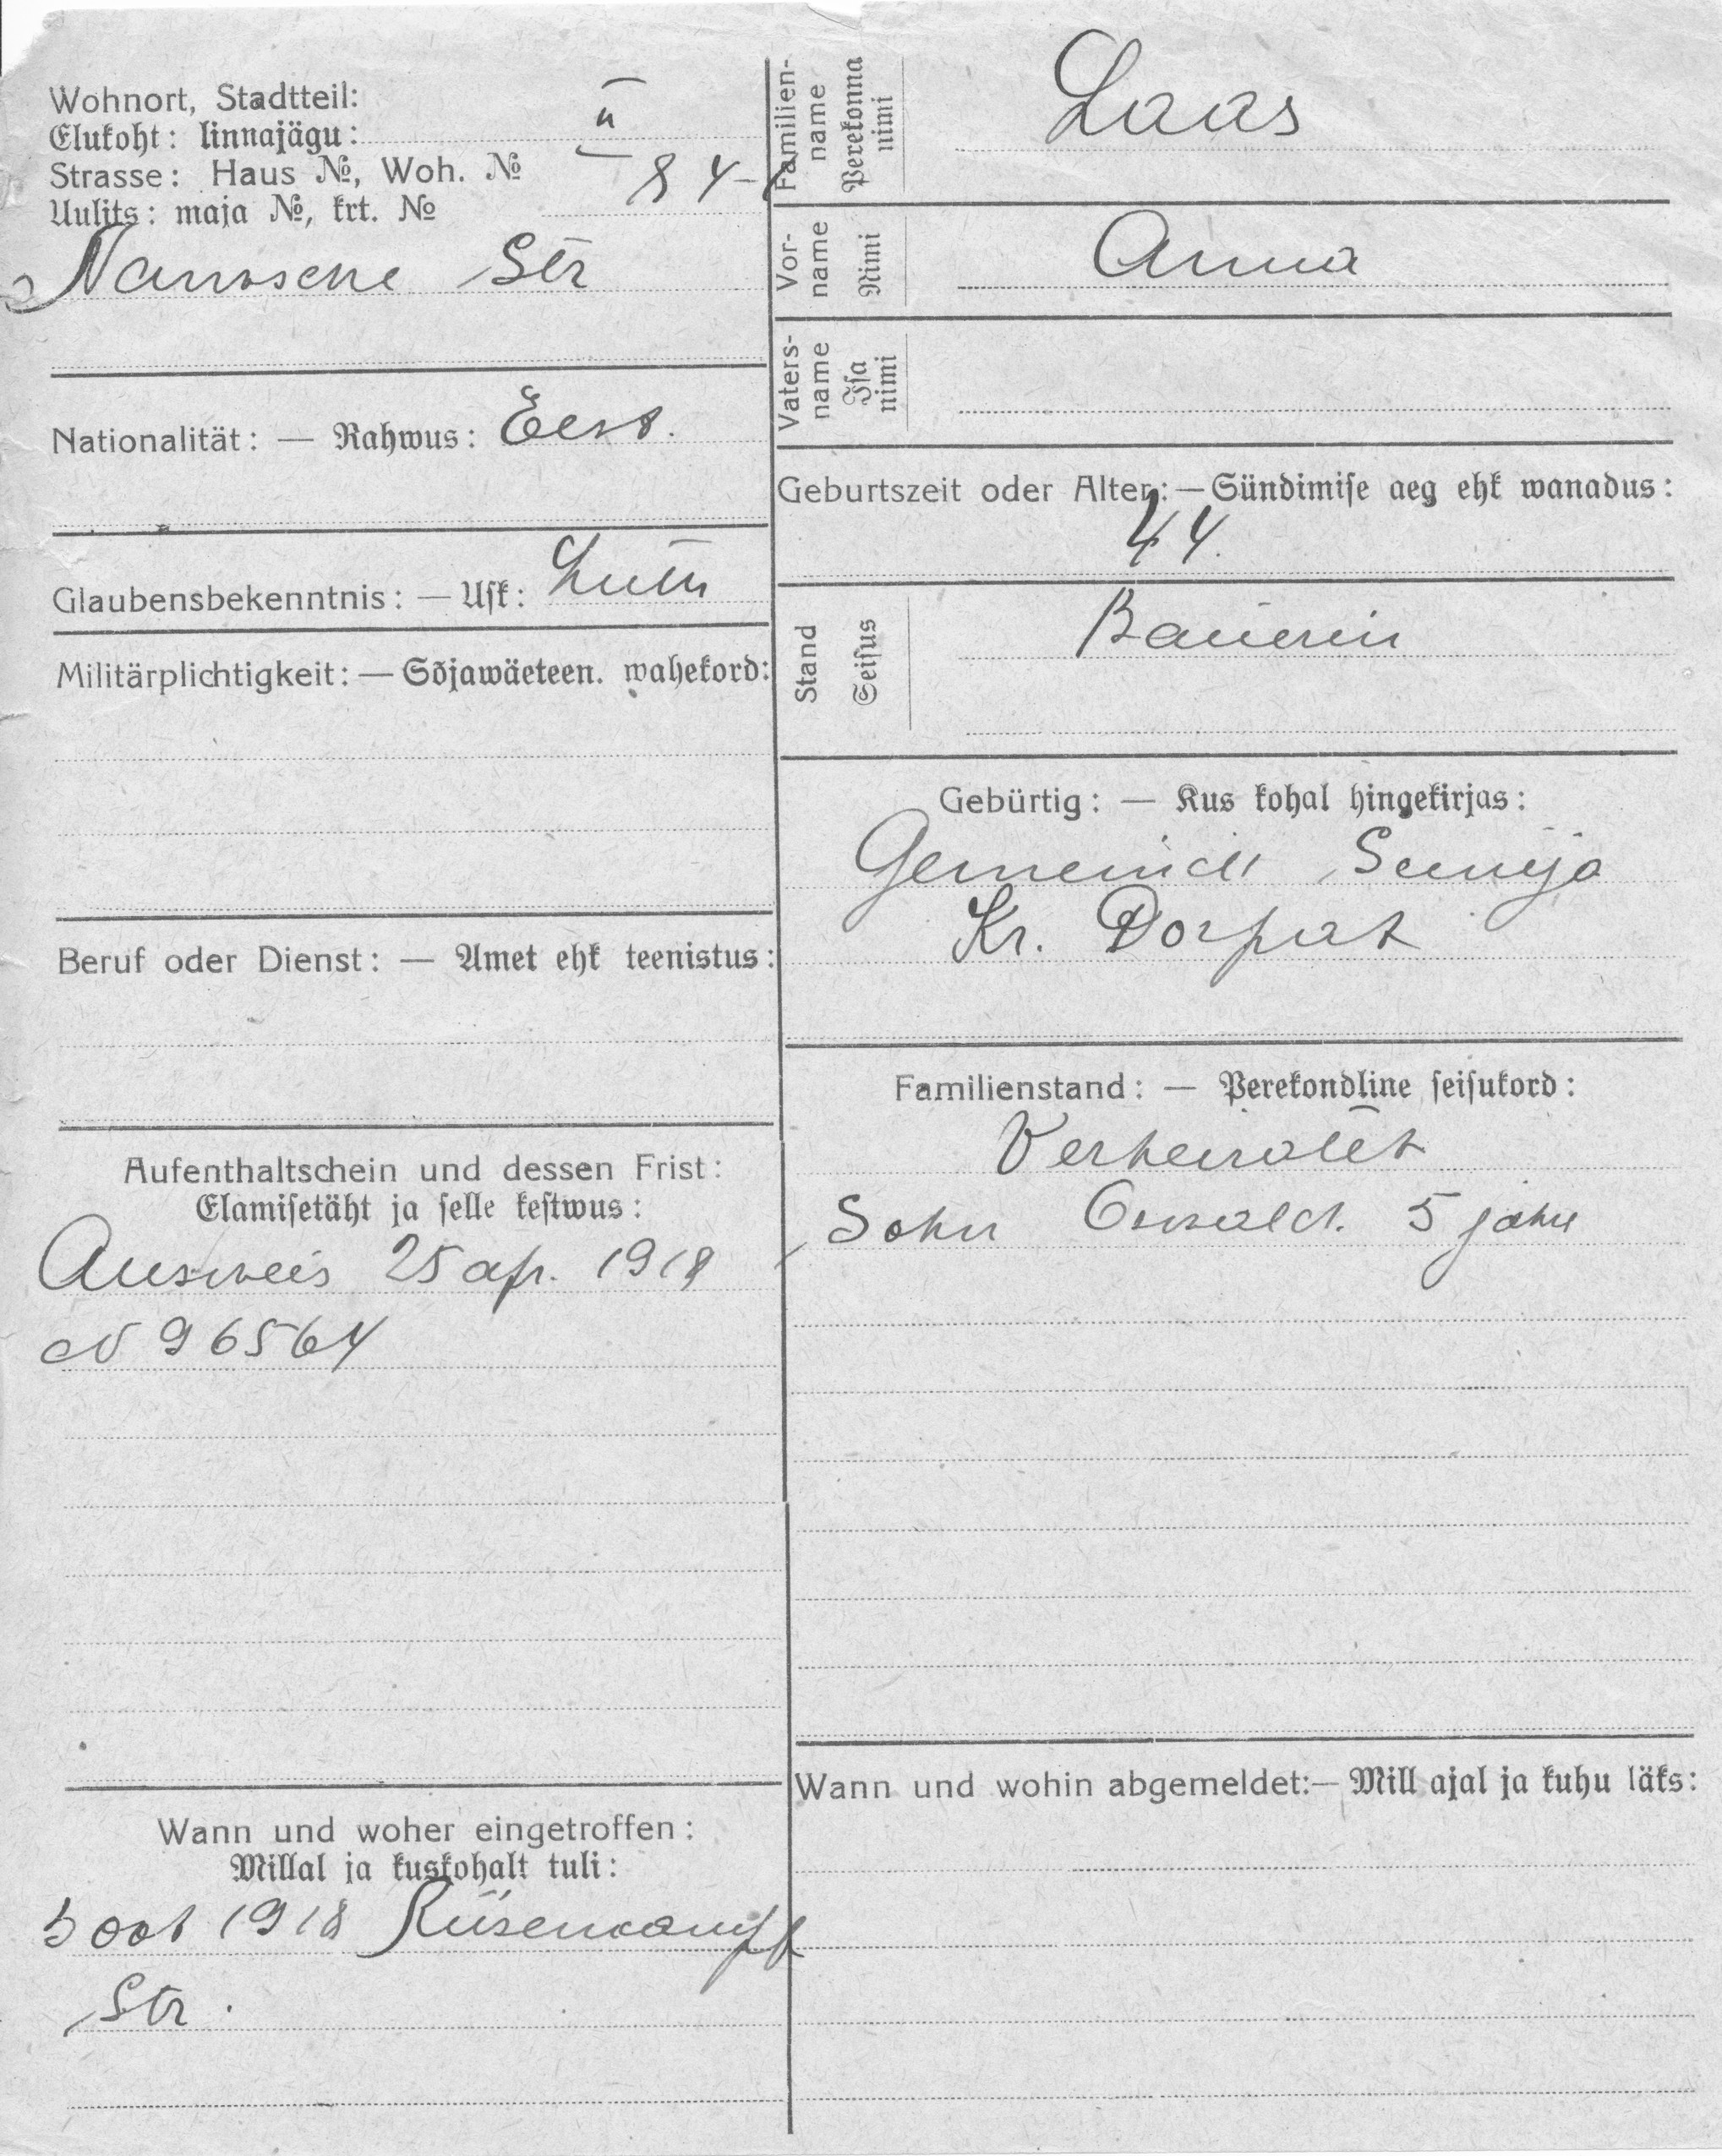 Wohnort, Stadtteil:
Elukoht: linnajägu: II
Strasse: Haus №, Woh. №
Uulits: maja №, krt. № 84-
Narwsche Str
Nationalität: — Rahwus: Eest.
Glaubensbekenntnis: — Usk: Luth
Militärplichtigkeit: — Sõjawäeteen. wahekord:
Beruf oder Dienst: — Amet ehk teenistus:
Aufenthaltschein und dessen Frist:
Elamisetäht ja selle kestwus:
Ausweis 25 apr. 1918
N 96564
Wann und woher eingetroffen:
Millal ja kuskohalt tuli:
5 oct 1918 Rüsenkampff
Str.
Familien-
name
Perekonna
nimi
Laas
Vor-
name
Nimi
Anna
Vaters-
name
Isa
nimi
Geburtszeit oder Alter: — Sündimise aeg ehk wanadus:
44.
Stand
Seisus
Bäuerin
Gebürtig: — Kus kohal hingekirjas:
Gemeinde
Kr. Dorpat
Familienstand: — Perekondline seisukord:
Verheiratet
Sohn Oswald. 5 jahre
Wann und wohin abgemeldet:— Mill ajal ja kuhu läks: